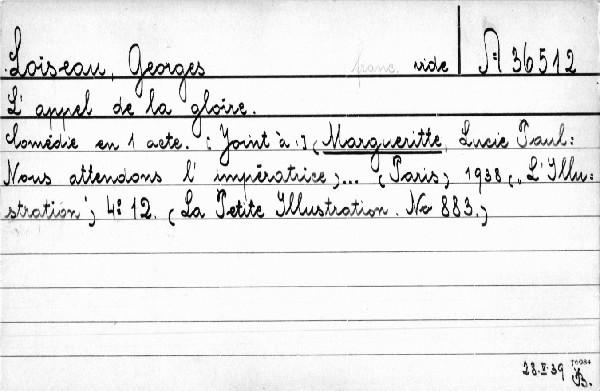 Loiseau, Georges franc. vide A 36512
L' appel de la gloire.
Comédie en 1 acte. [: Joint à :] (Margueritte, Lucie Paul:
Nous attendons l' impératrice), ... (Paris), 1938 („L'Illu-
stration"), 4: 12. (La Petite Illustration. No 883.)
28.II.39